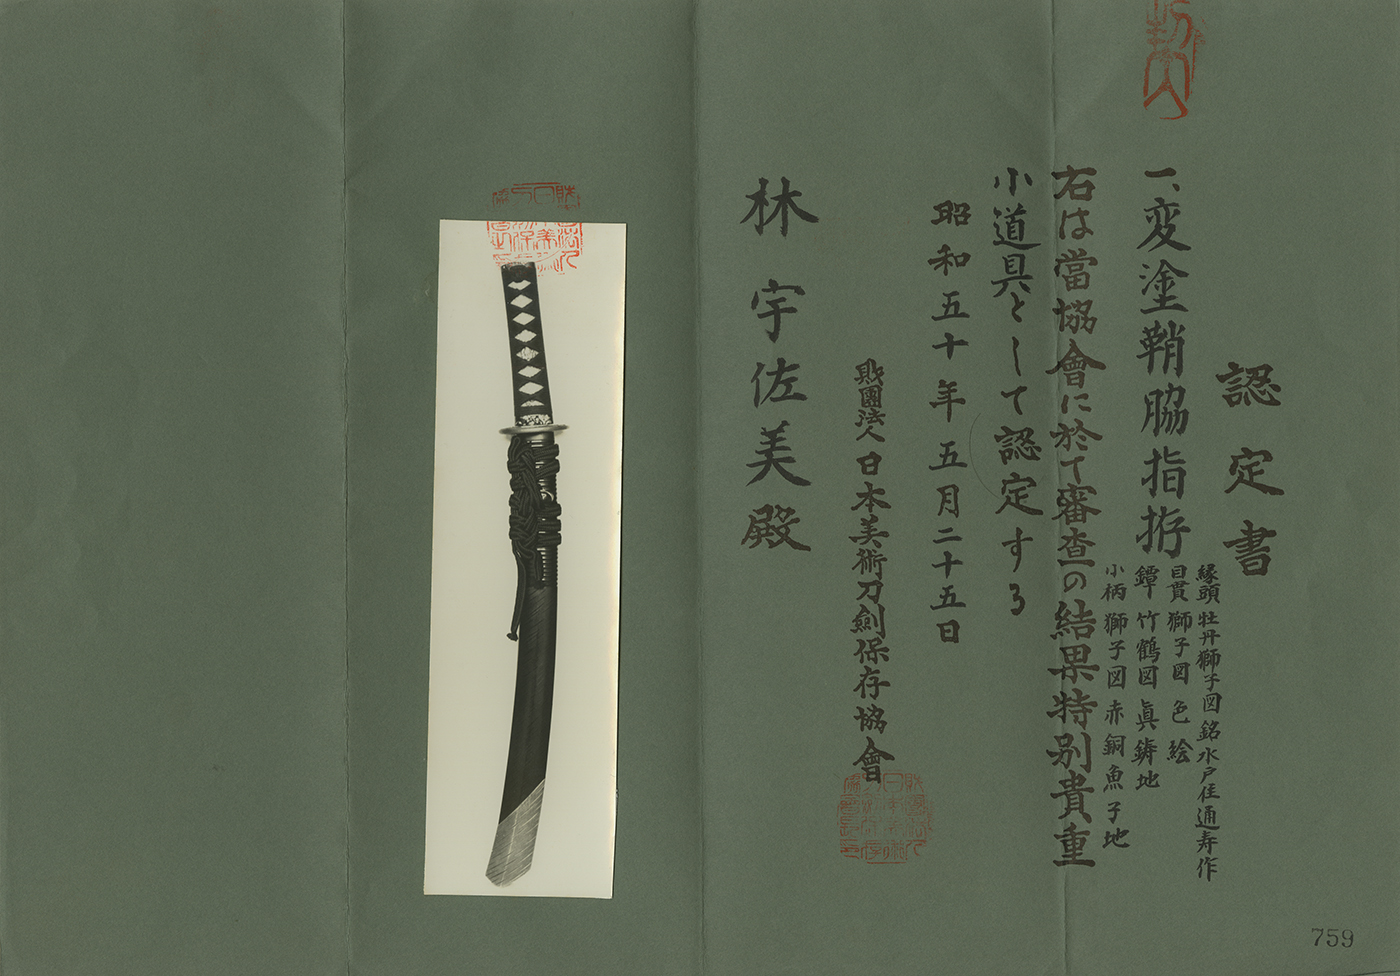 認定書
一、変塗鞘脇指拵
縁頭 牡丹獅子図 銘 水戸住通寿作
目貫 獅子図 色絵
鐔 竹鶴図 真鍮地
小柄 獅子図 赤銅魚子地
右は當協會に於て審査の結果特別貴重
小道具として認定する
昭和五十年五月二十五日
財團法人 日本美術刀劍保存協會
林 宇佐美殿
759